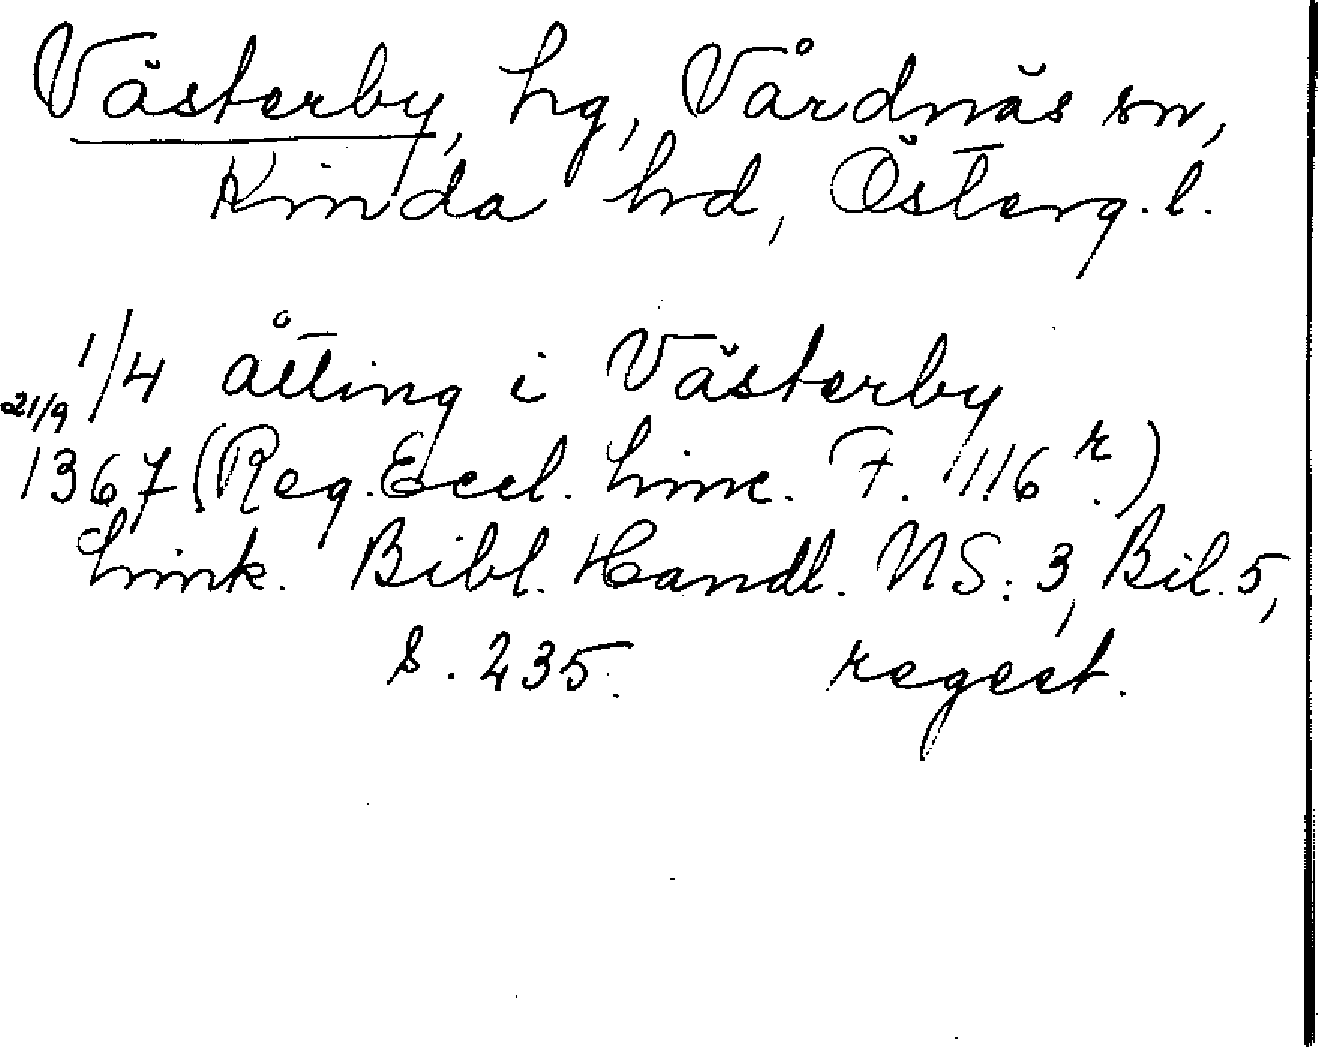 Västerby, hg, Vårdnäs sn,
Kinda hd, Österg. l.
1/4 åtting i Västerby
21/9
1367 (Reg. Eccl. Linc. F. 116 r.)
Link. Bibl. Handl. NS: 3, Bil. 5,
s. 235. regest.